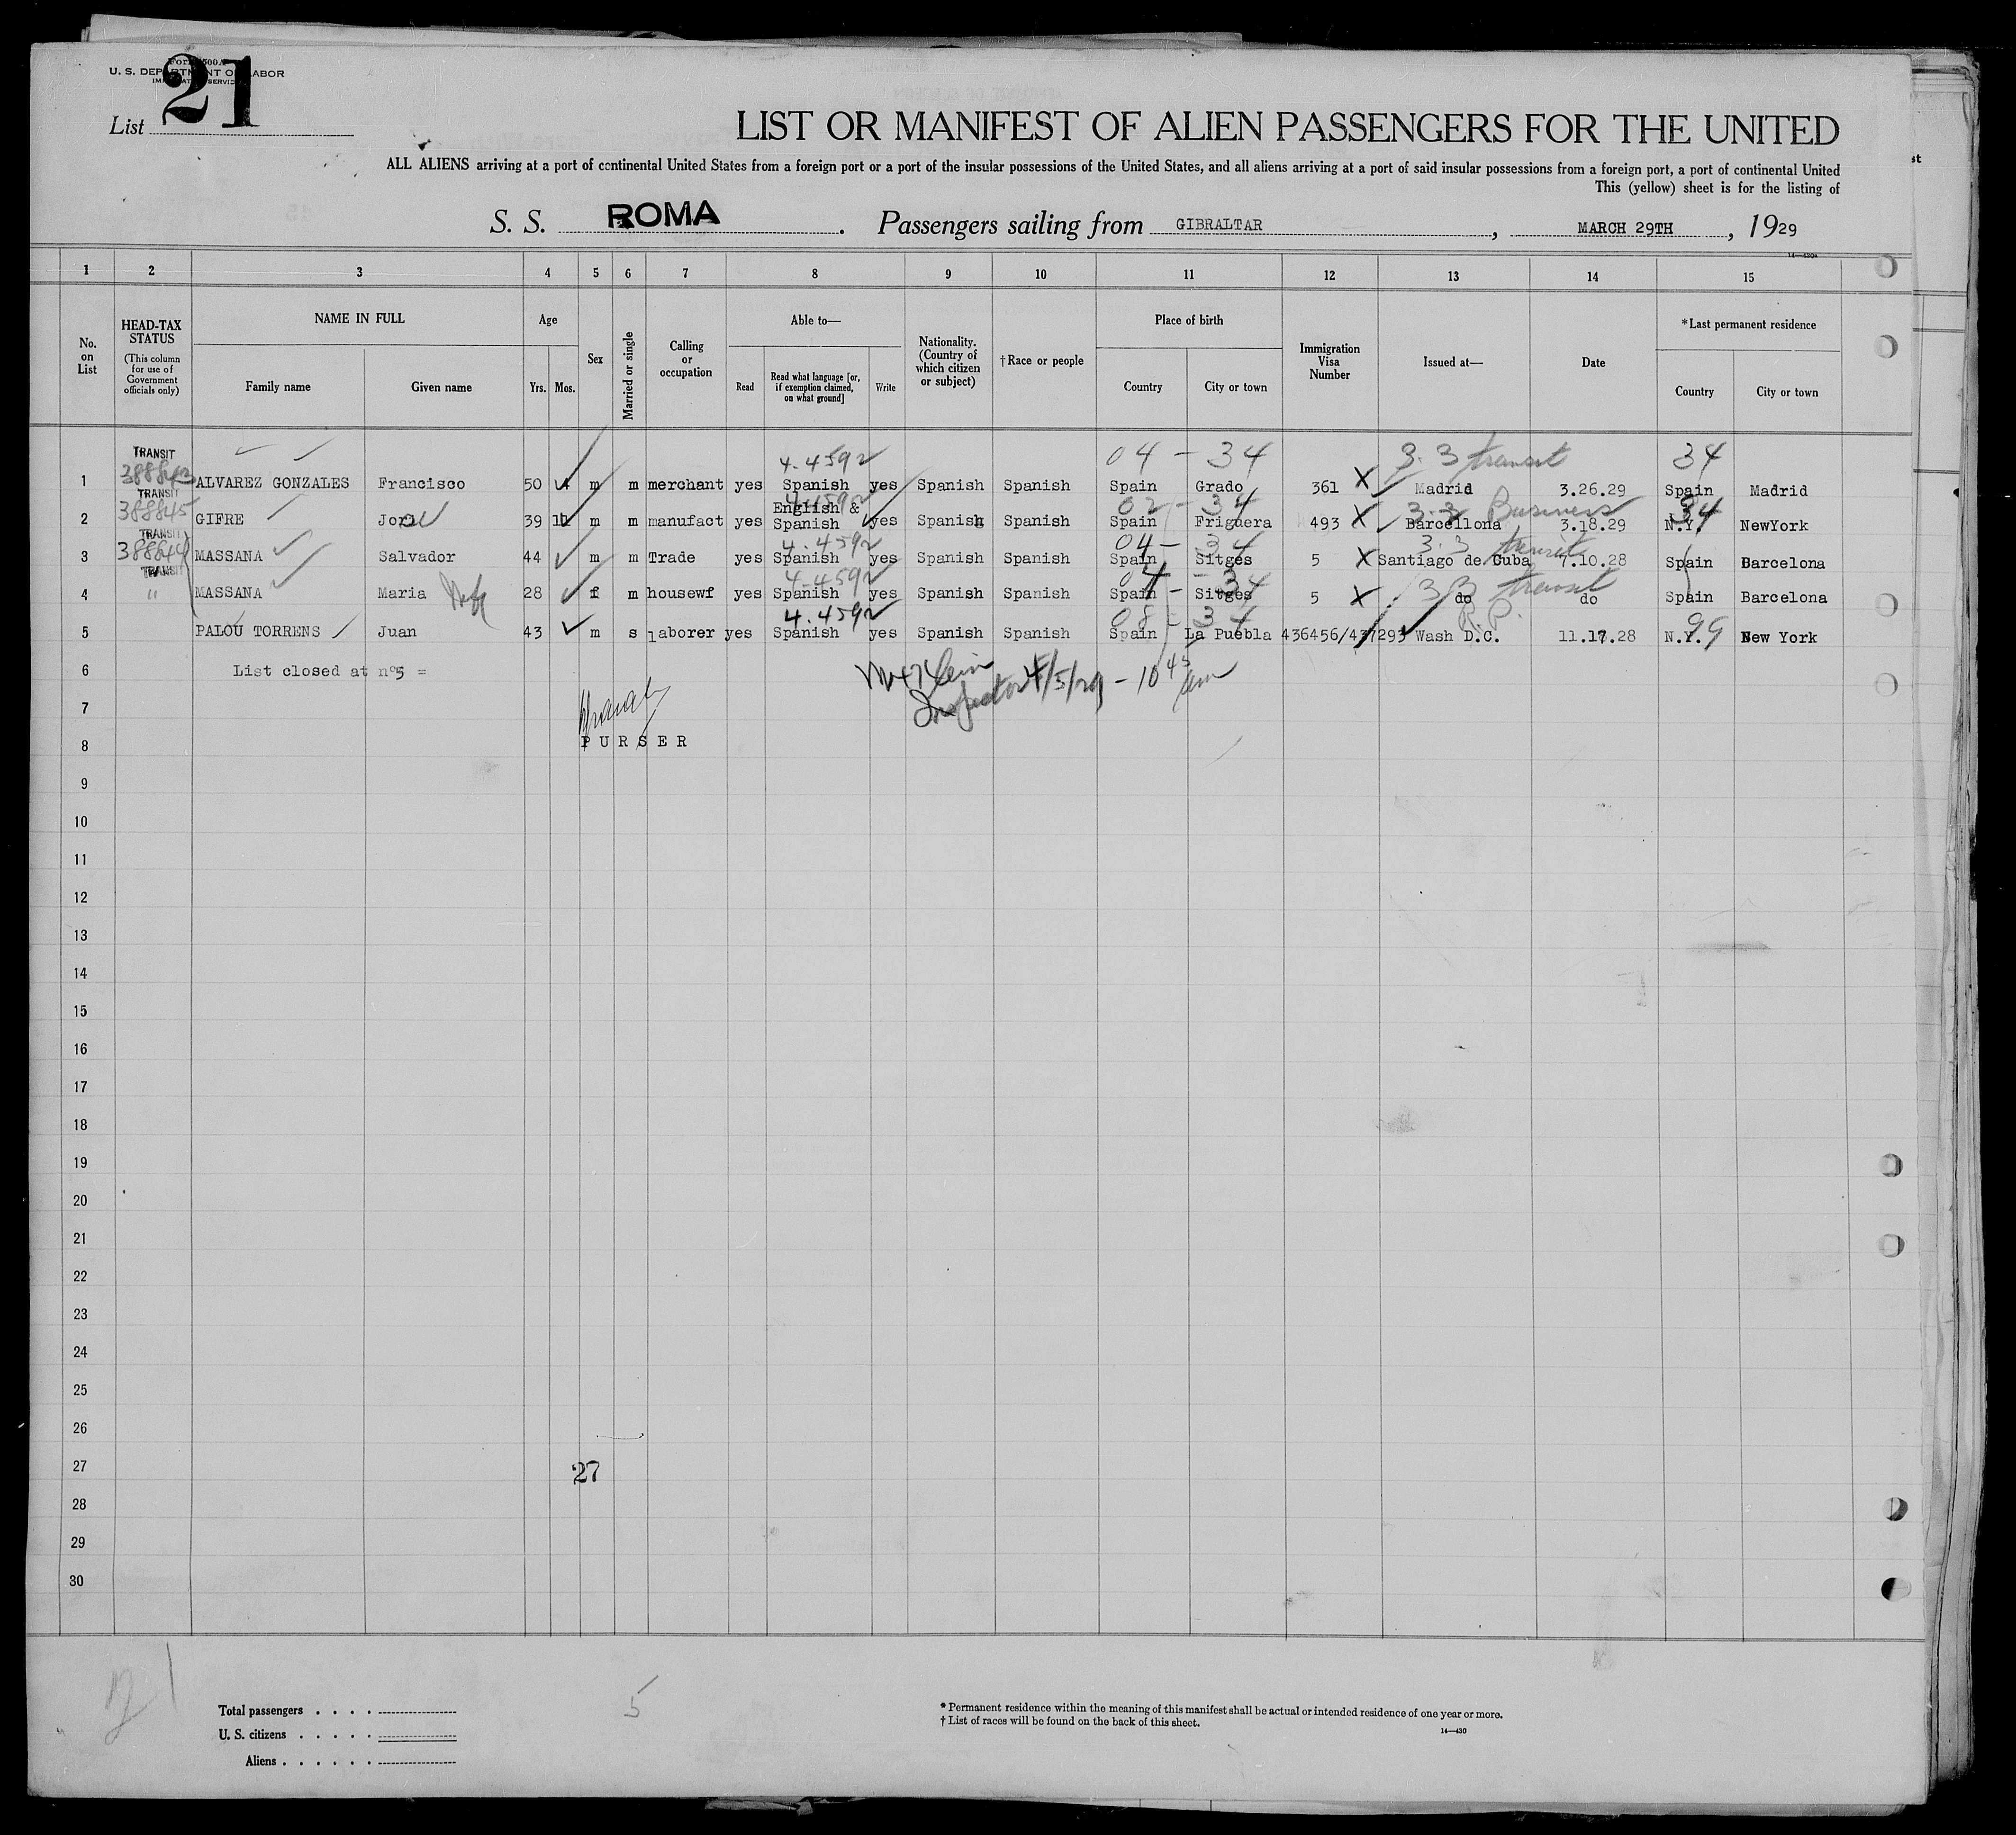 Form 500A
U. S. DEPARTMENT OF LABOR
IMMIGRATION SERVICE
List 21
LIST OR MANIFEST OF ALIEN PASSENGERS FOR THE UNITED
ALL ALIENS arriving at a port of continental United States from a foreign port or a port of the insular possessions of the United States, and all aliens arriving at a port of said insular possessions from a foreign port, a port of continental United
This (yellow) sheet is for the listing of
S. S. ROMA. Passengers sailing from GIBRALTAR, MARCH 29TH, 1929
1 2 3 4 5 6 7 8 9 10 11 12 13 14 15
No. on List
HEAD-TAX STATUS
(This column for use of Government officials only)
NAME IN FULL
Family name Given name
Age
Yrs. Mos.
Sex
Married or single
Calling or occupation
Able to—
Read
Read what language [or, if exemption claimed, on what ground]
Write
Nationality. (Country of which citizen or subject)
†Race or people
Place of birth
Country City or town
Immigration Visa Number
Issued at—
Date
*Last permanent residence
Country City or town
TRANSIT 4-4592 04 - 34 3.3 transit 34
1 388843 ALVAREZ GONZALES Francisco 50 m m merchant yes Spanish yes Spanish Spanish Spain Grado 361 X Madrid 3.26.29 Spain Madrid
TRANSIT 4-4592 02 - 34 3.3 Business 34
2 388845 GIFRE 39 m m manufact yes English & Spanish yes Spanish Spanish Spain Friguera 493 X Barcellona 3.18.29 N.Y. NewYork
TRANSIT 4.4592 04 - 34 3.3 transit
3 388844 MASSANA Salvador 44 m m Trade yes Spanish yes Spanish Spanish Spain Sitges 5 X Santiago de Cuba 7.10.28 Spain Barcelona
TRANSIT 4-4592 04 - 34 3.3 transit
4 " MASSANA Maria 28 f m housewf yes Spanish yes Spanish Spanish Spain Sitges 5 X do do Spain Barcelona
4.4592 08 - 34 R.P. 99
5 PALOU TORRENS Juan 43 m s laborer yes Spanish yes Spanish Spanish Spain La Puebla 436456/437293 Wash D.C. 11.17.28 N.Y. New York
6 List closed at nº5 =
Inspector 4/5/29 - 10 45 am
7
8 PURSER
9
10
11
12
13
14
15
16
17
18
19
20
21
22
23
24
25
26
27 27
28
29
30
Total passengers . . . .
5
U. S. citizens . . . . .
Aliens . . . . . .
* Permanent residence within the meaning of this manifest shall be actual or intended residence of one year or more.
† List of races will be found on the back of this sheet.
14—430